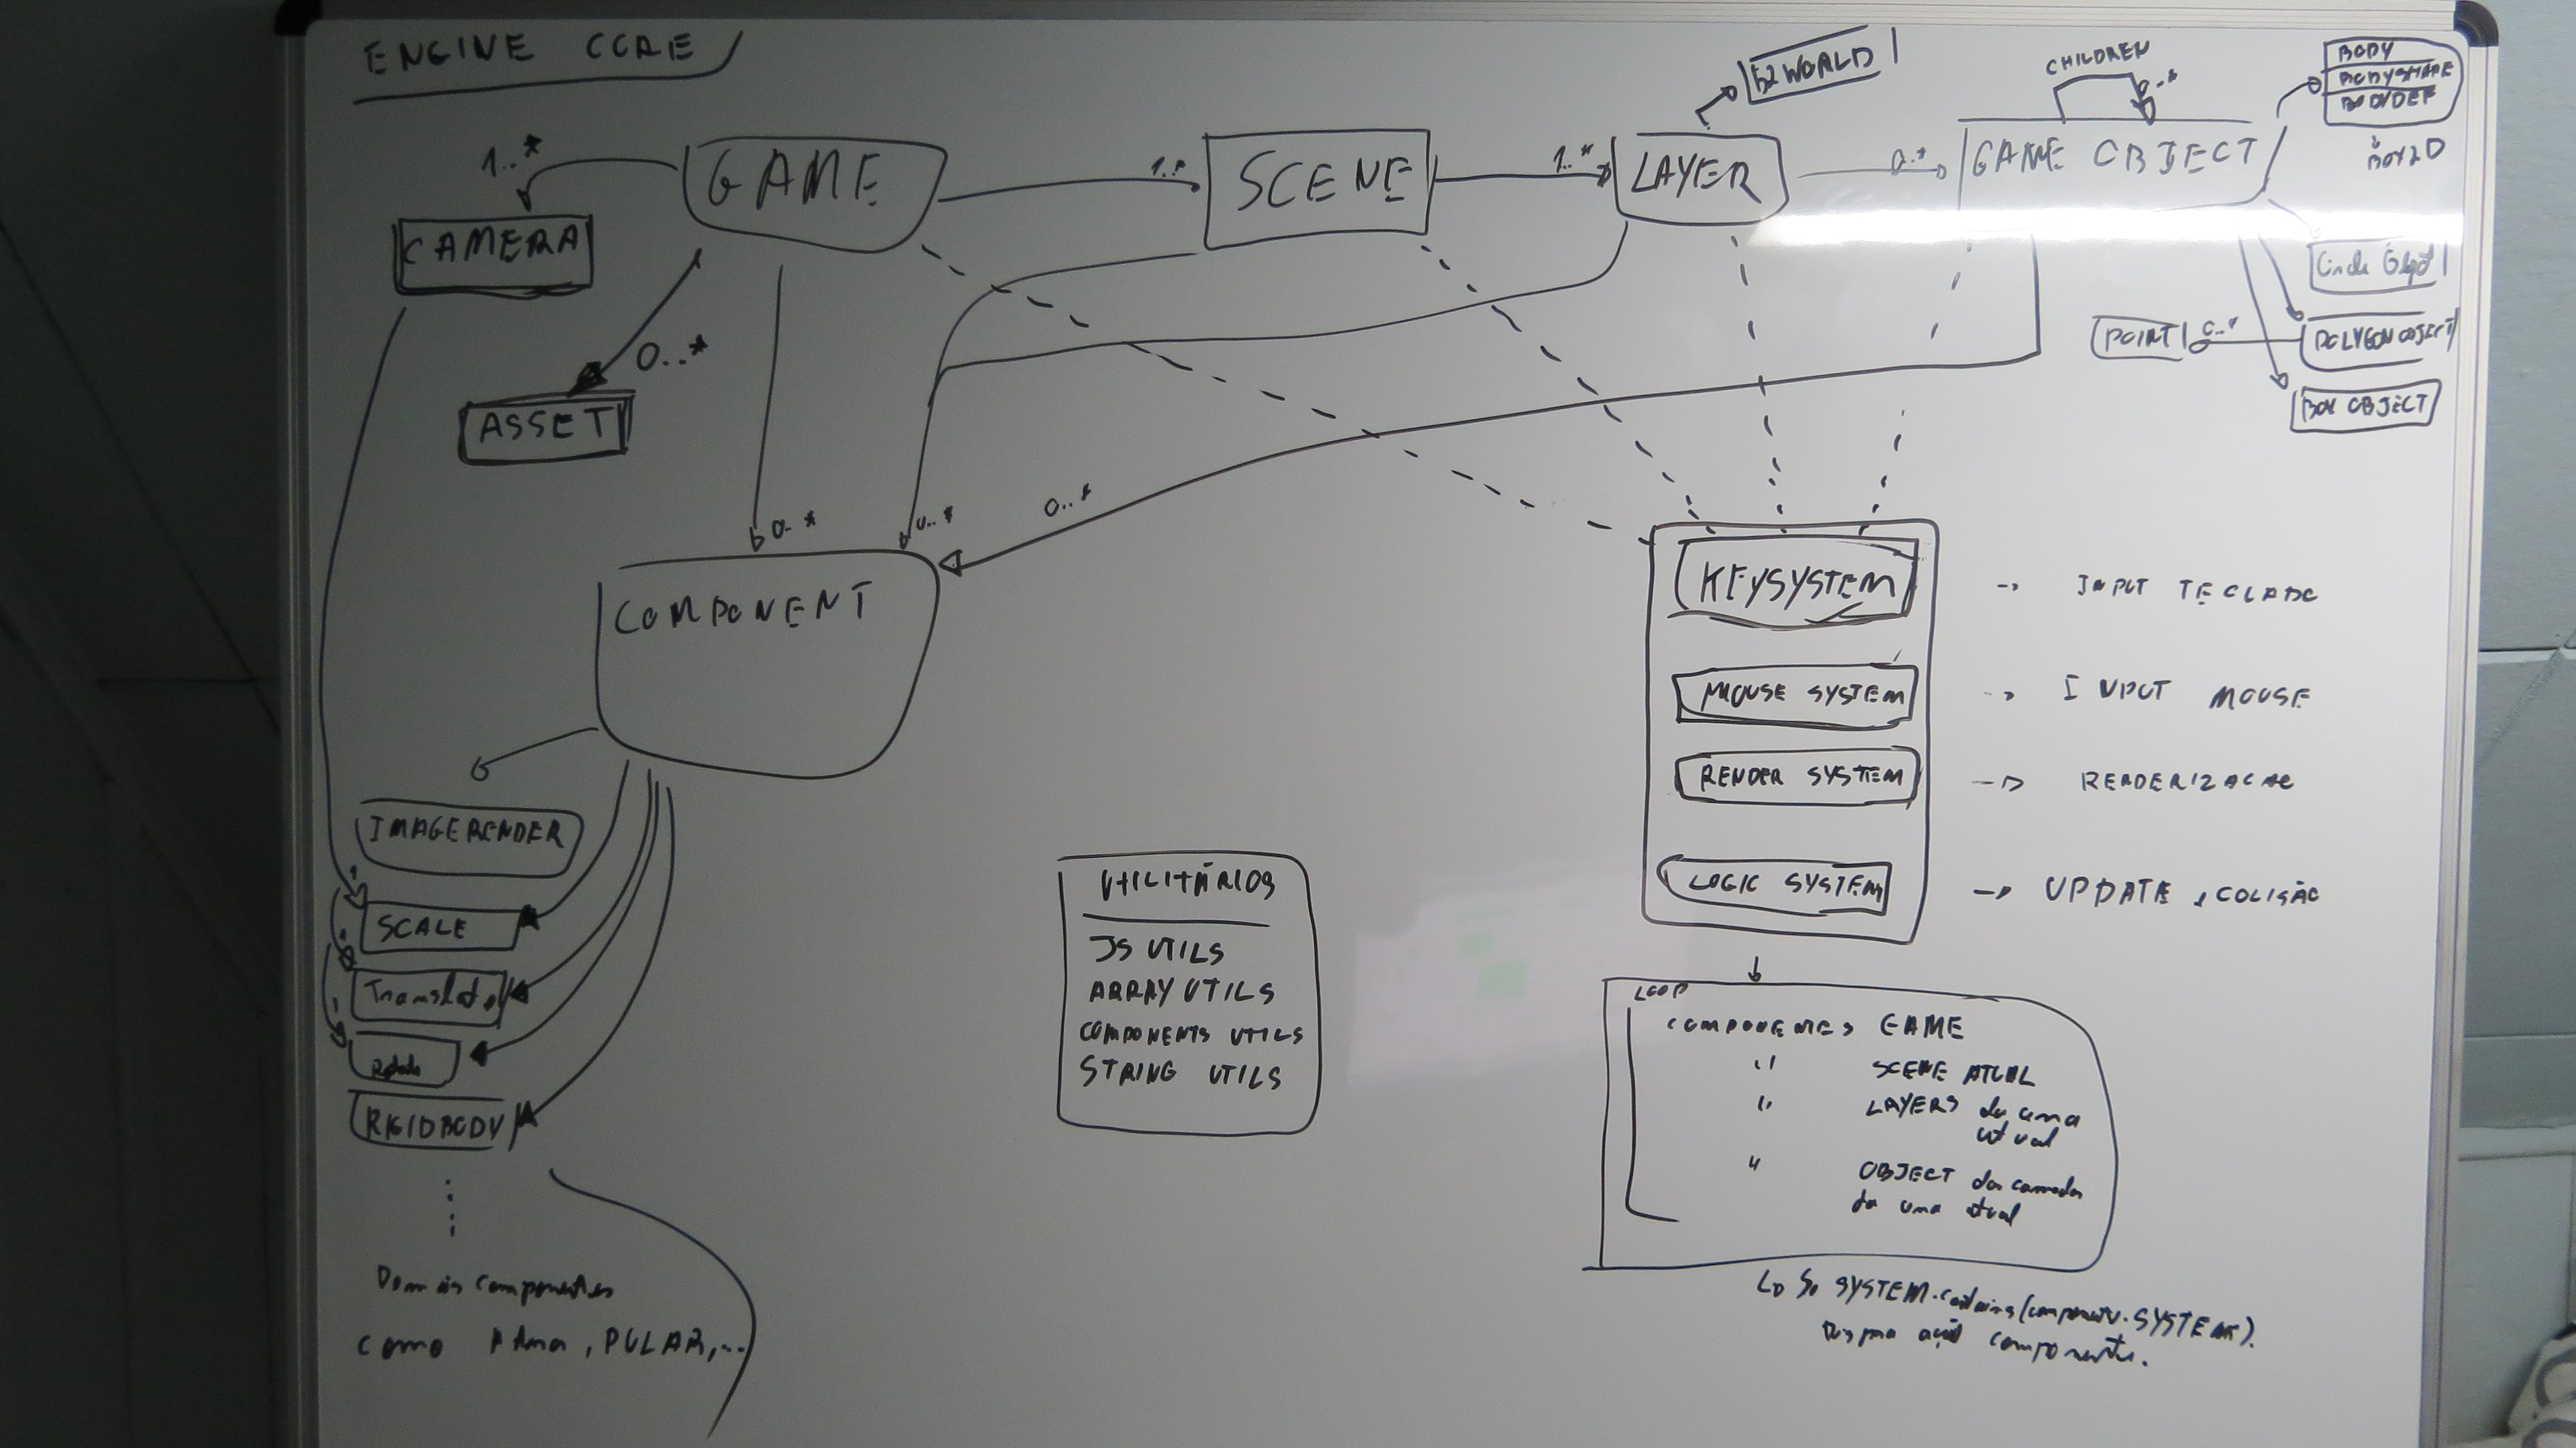 ENGINE CORE
1..*
GAME
CAMERA
0..*
ASSET
1..*
SCENE
1..*
LAYER
b2WORLD
0..*
GAME OBJECT
CHILDREN
0..*
BODY
BODYSHAPE
BODYDEF
BOX2D
Circle Object
POLYGON OBJECT
0..*
POINT
BOX OBJECT
0..*
0..*
0..*
COMPONENT
IMAGERENDER
SCALE
Translate
Rotate
RIGIDBODY
Demais componentes
como , PULAR,...
UTILITÁRIOS
JS UTILS
ARRAY UTILS
COMPONENTS UTILS
STRING UTILS
KEYSYSTEM → INPUT TECLADO
MOUSE SYSTEM → INPUT MOUSE
RENDER SYSTEM → RENDERIZACAO
LOGIC SYSTEM → UPDATE, COLISÃO
LOOP
COMPONENTES GAME
" SCENE ATUAL
" LAYERS da cena
atual
" OBJECT das camadas
da cena atual
↳ Se SYSTEM.contains(component.SYSTEM).
Dispara ação componente.